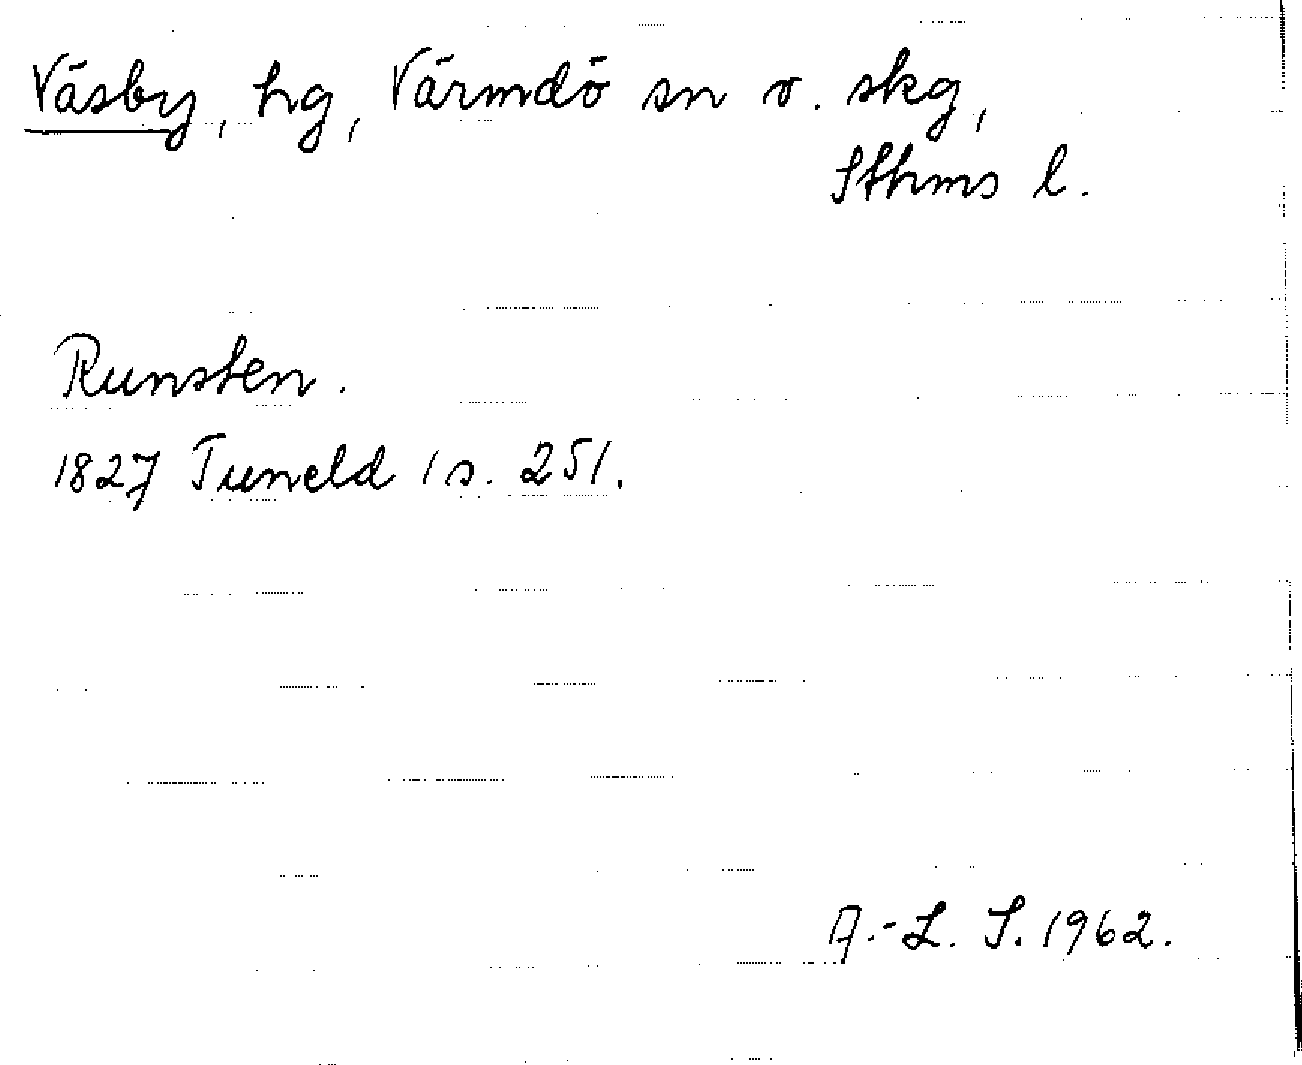 Väsby, hg, Värmdö sn o. skg,
Sthms l.
Runsten.
1827 Tuneld 1 s. 251.
A.-L. S. 1962.